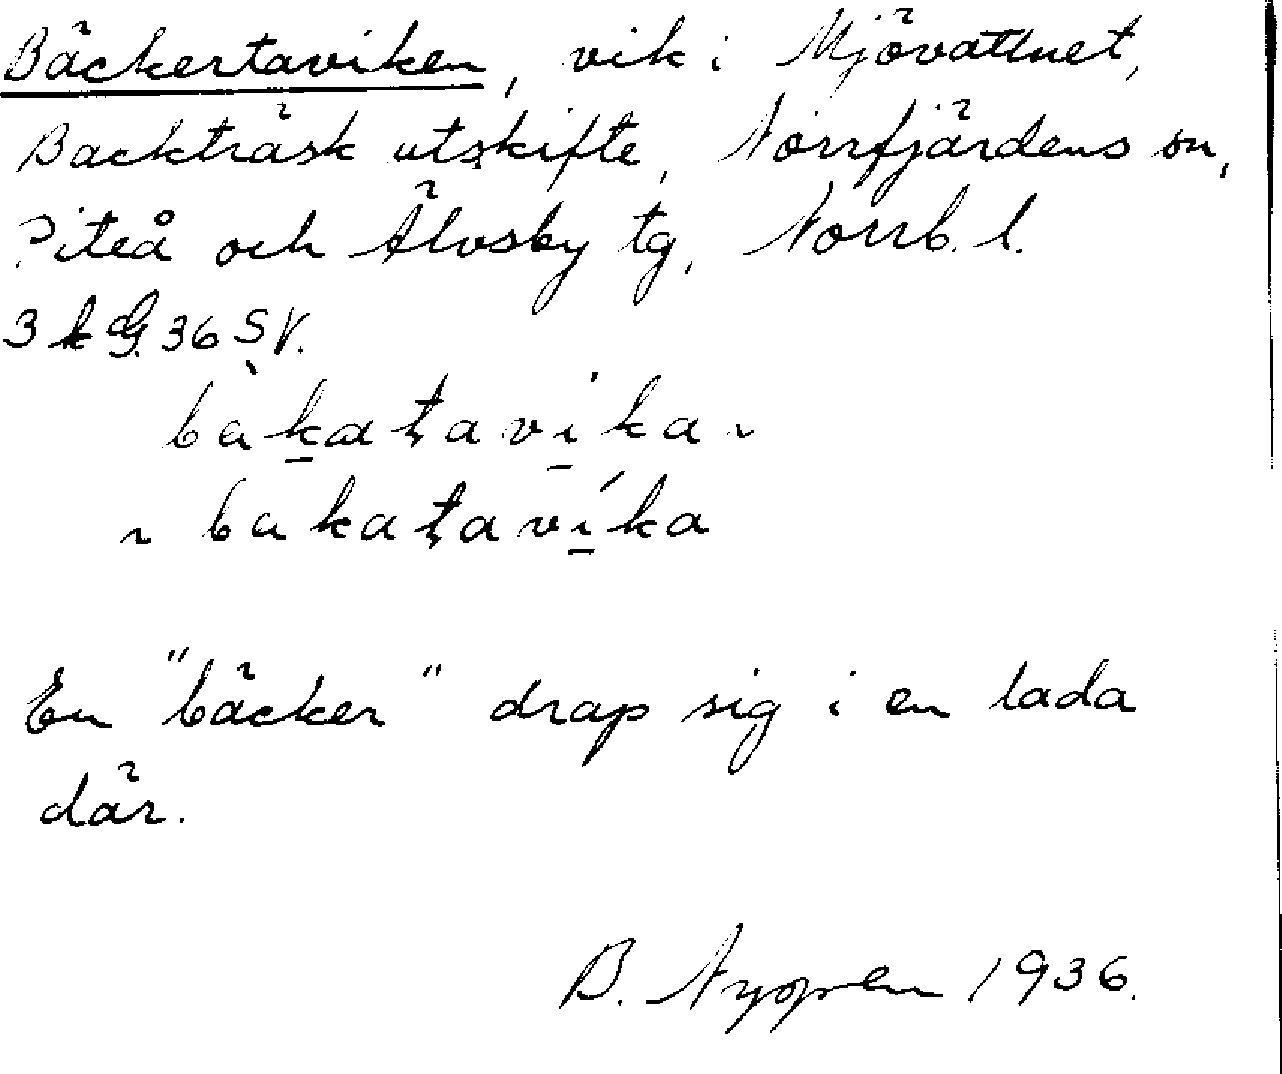 Bäckertaviken, vik i Mjövattnet,
Backträsk utskifte, Norrfjärdens sn,
Piteå och Älvsby tg, Norrb. l.
3 k 36 SV.
bakatavika ~
~ bakatavika
En "bäcker" drap sig i en lada
där.
B. 1936.